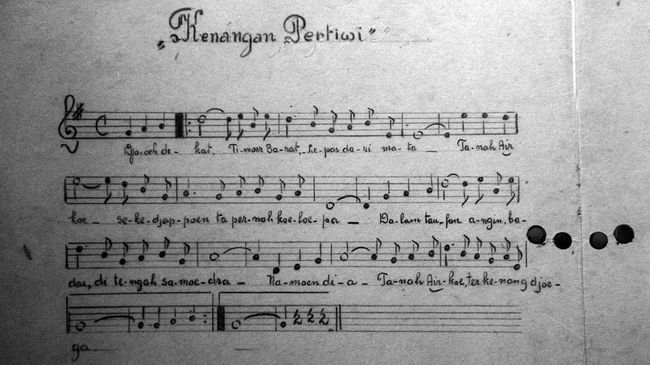 „Kenangan Pertiwi"
Djaoeh de-kat, Timoer Barat, le-pas da-ri ma-ta — Ta-nah Air
koe — se-ke-djap-poen ta per-nah koe-loe-pa — Da-lam tau-fan a-ngin, ba-
dai, di te-ngah sa-moe-dra — Na-moen di-a — Ta-nah Air-koe, ter-ke-nang djoe-
ga